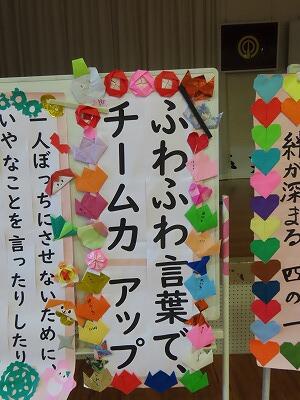 絆が深まる 四の一
ふわふわ言葉で、
チーム力 アップ
一人ぼっちにさせないために、
いやなことを言ったりしたり